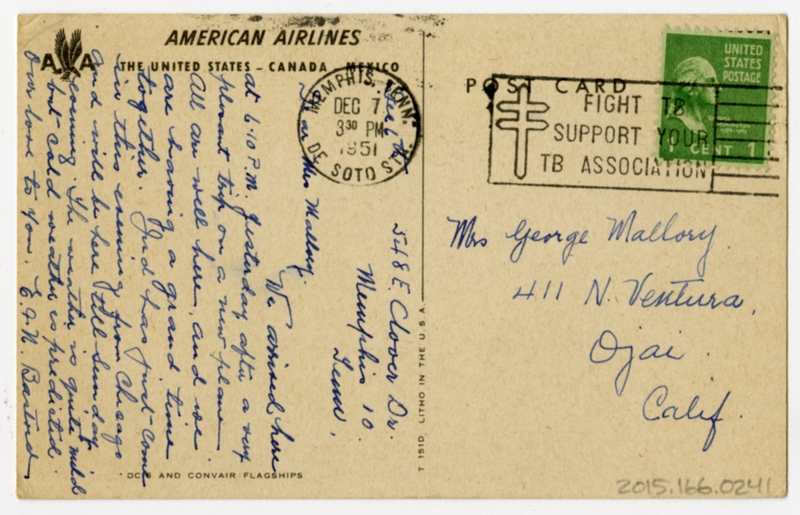 AMERICAN AIRLINES
AA
THE UNITED STATES – CANADA MEXICO
POST CARD
UNITED
STATES
POSTAGE
CENT 1
MEMPHIS, TENN.
DEC 7
3 30 PM
1951
DE SOTO STA
FIGHT TB
SUPPORT YOUR
TB ASSOCIATION
548 E. Clover Dr.
Memphis 10
Tenn.
Dec 6 th
Dear Mrs Mallory:
We arrived here
at 6:10 P.M. yesterday after a very
pleasant trip on a new plane.
All are well here, and we
are having a grand time
together. Jud has just come
in this evening from Chicago
and will be here till Sunday
evening. The weather is quite mild
but cold weather is predicted.
Our love to you, E. & N.
Mrs George Mallory.
411 N. Ventura,
Ojai.
Calif.
T 151D LITHO IN THE U.S.A.
DC6 AND CONVAIR FLAGSHIPS
2015.166.0241